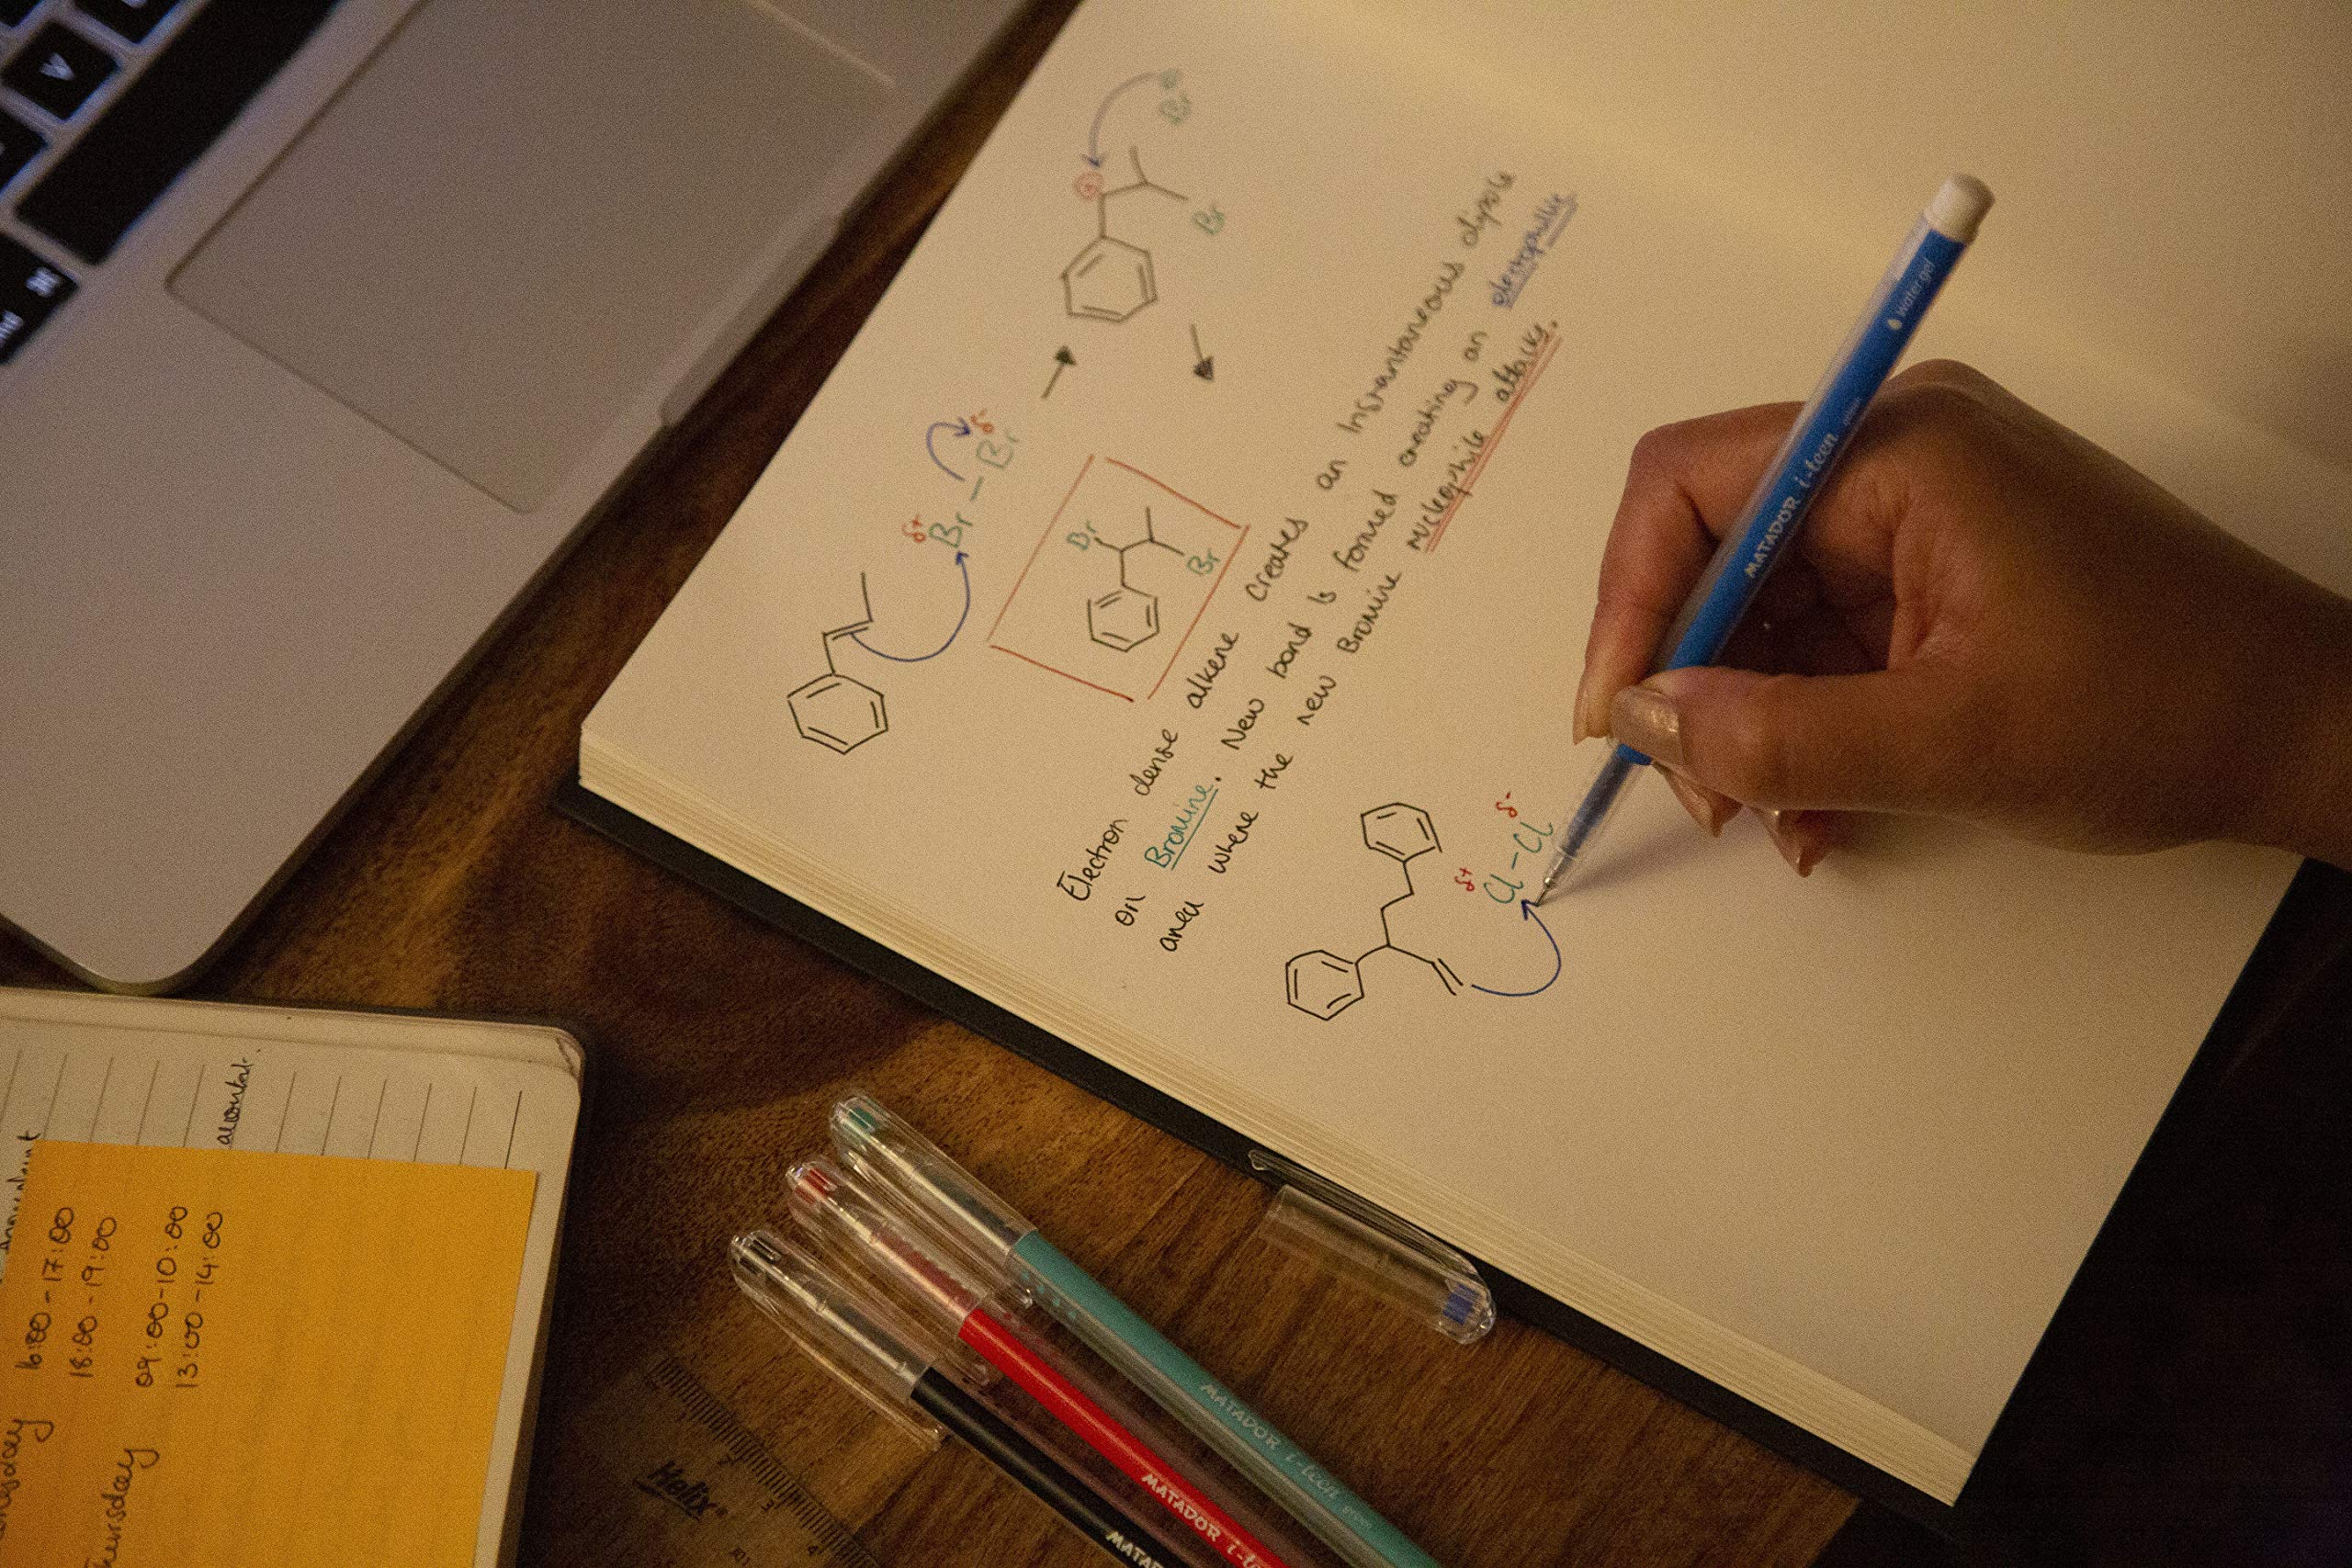 V
⌘
Br
⊕
Br
δ+
δ-
Br – Br
Br
Br
Electron dense alkene creates an Instantaneous dipole
on Bromine. New bond is formed creating an electrophilic
area where the new Bromine nucleophile attacks.
δ+
δ-
Cl – Cl
MATADOR i-teen
Water gel
MATADOR i-teen
MATADOR
MATAD
Helix
2
3
4
16:00 - 17:00
18:00 - 19:00
Thursday 09:00 - 10:00
13:00 - 14:00